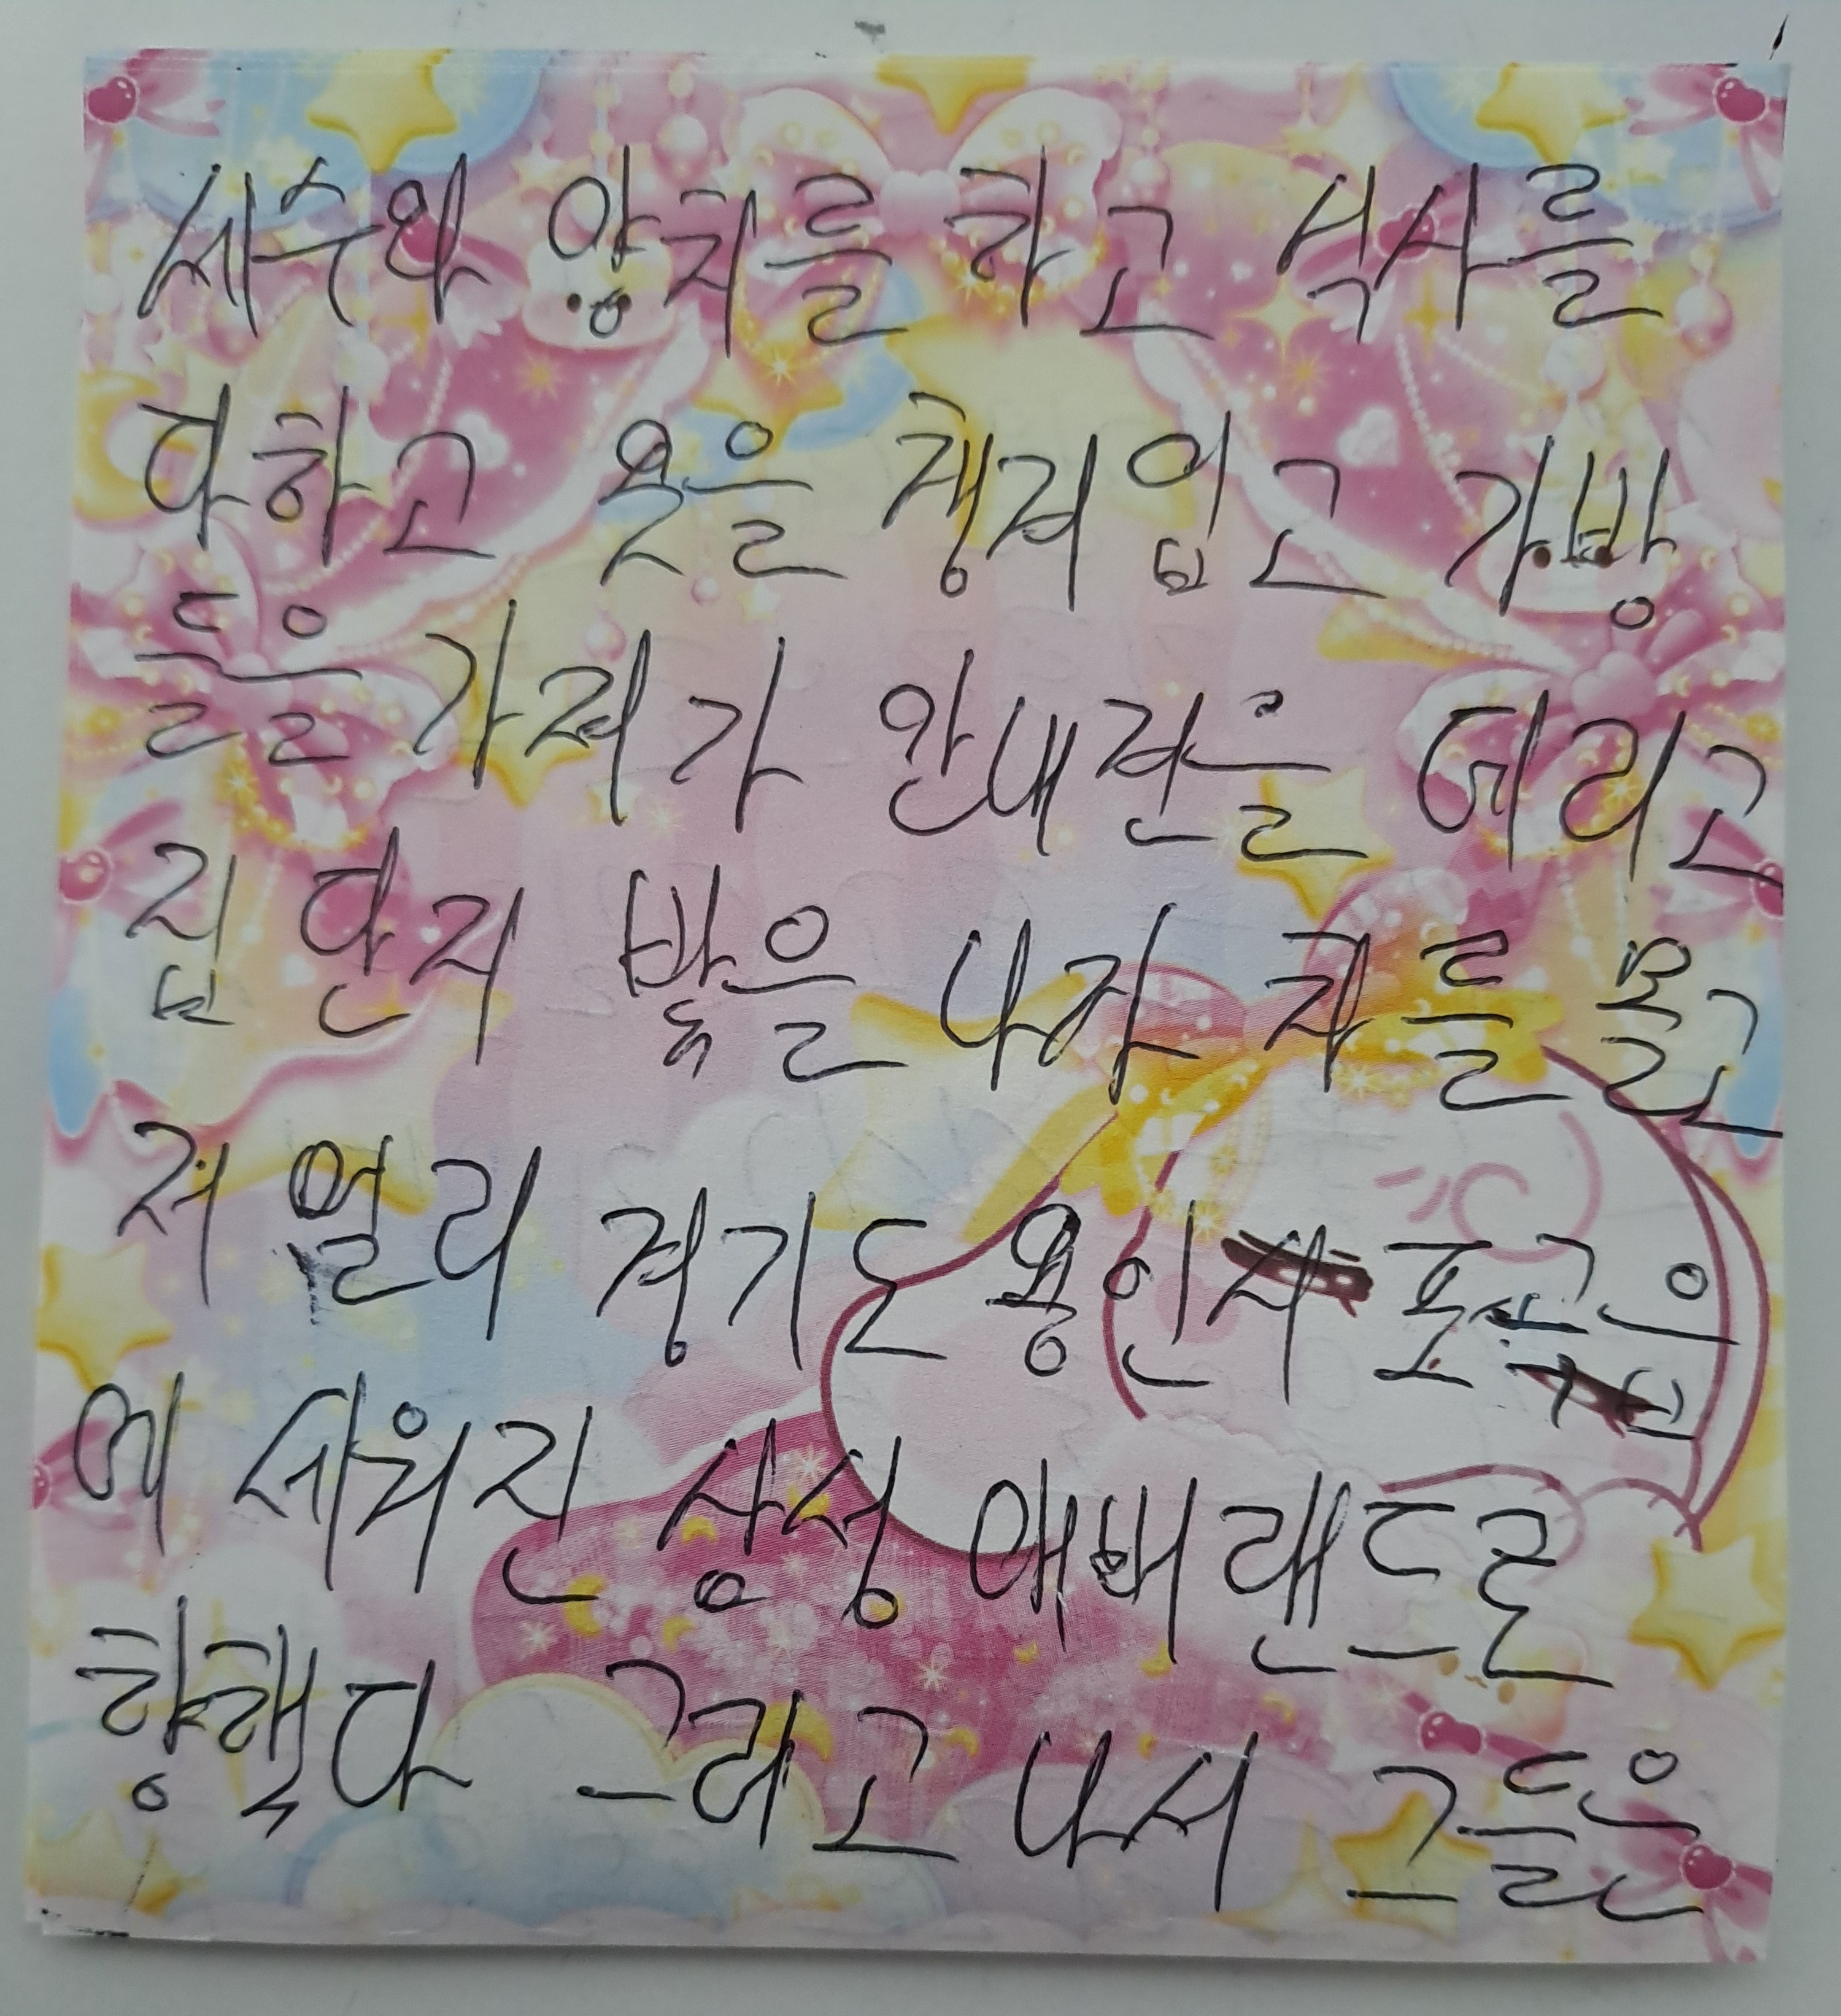 세수와 양치를 하고 식사를
다하고 옷을 챙겨입고 가방
들을 가져가 안내견을 데리고
집 단지 밖을 나가 차를 몰고
저 멀리 경기도 용인시 포곡읍
에 세워진 삼성 애버랜드로
향했다 그리고 나서 그들은